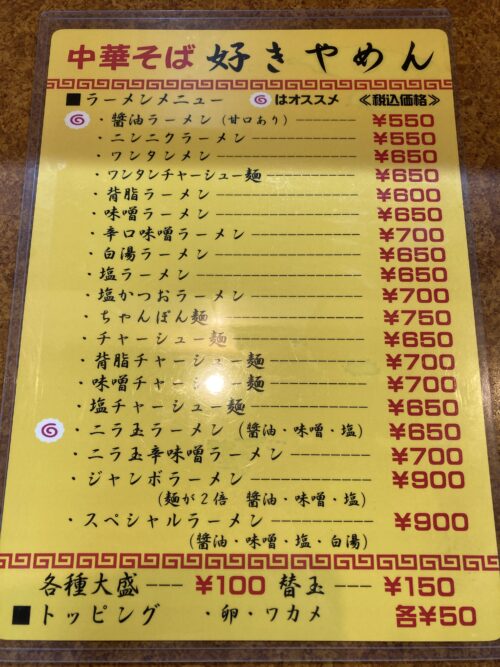 中華そば 好きやめん
■ラーメンメニュー はオススメ ≪税込価格≫
・醬油ラーメン (甘口あり) ------ ¥550
・ニンニクラーメン ------ ¥550
・ワンタンメン ------ ¥650
・ワンタンチャーシュー麺 ------ ¥650
・背脂ラーメン ------ ¥600
・味噌ラーメン ------ ¥650
・辛口味噌ラーメン ------ ¥700
・白湯ラーメン ------ ¥650
・塩ラーメン ------ ¥650
・塩かつおラーメン ------ ¥700
・ちゃんぽん麺 ------ ¥750
・チャーシュー麺 ------ ¥650
・背脂チャーシュー麺 ------ ¥700
・味噌チャーシュー麺 ------ ¥700
・塩チャーシュー麺 ------ ¥650
・ニラ玉ラーメン (醬油・味噌・塩) ¥650
・ニラ玉辛味噌ラーメン ------ ¥700
・ジャンボラーメン ------ ¥900
(麺が2倍 醬油・味噌・塩)
・スペシャルラーメン ------ ¥900
(醬油・味噌・塩・白湯)
各種大盛 --- ¥100 替玉 --- ¥150
■トッピング ・卵・ワカメ 各¥50